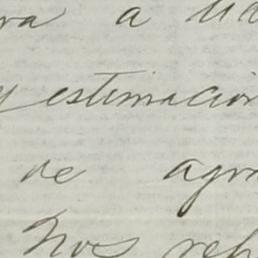 ra a Ud
y estimación
de agra
Nos reh